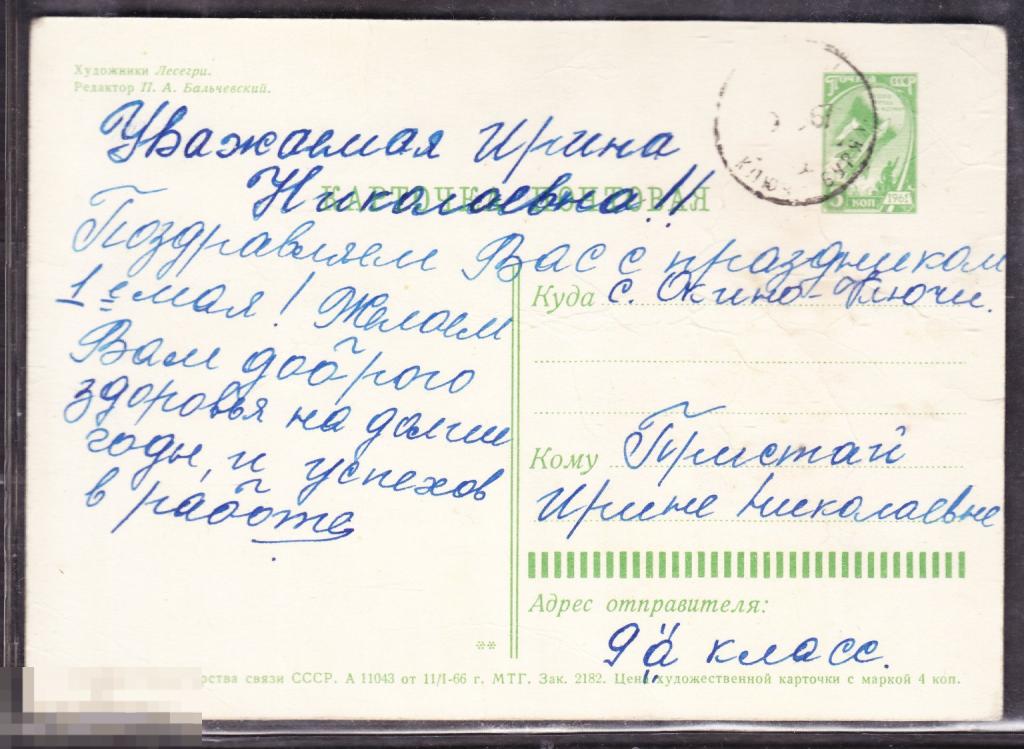 Художники Лесегри.
Редактор П. А. Бальчевский.
ПОЧТА СССР
КОП
1961
Уважаемая Ирина
КАРТОЧКА ПОЧТОВАЯ
Николаевна!!
Поздравляем Вас с праздником
1е мая! Желаем
Вам доброго
здоровья на долгие
годы, и успехов
в работе
Куда с. Окино-Ключи.
Кому Пристай
Ирине Николаевне
Адрес отправителя:
9 "а" класс.
**
рства связи СССР. А 11043 от 11/I-66 г. МТГ. Зак. 2182. Цена художественной карточки с маркой 4 коп.